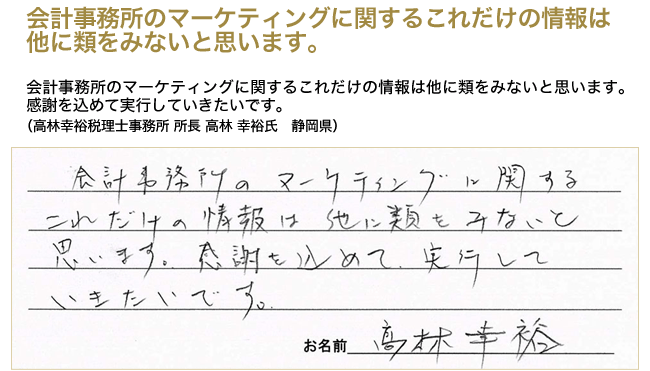 会計事務所のマーケティングに関するこれだけの情報は
他に類をみないと思います。
会計事務所のマーケティングに関するこれだけの情報は他に類をみないと思います。
感謝を込めて実行していきたいです。
（高林幸裕税理士事務所 所長 高林 幸裕氏　静岡県）
会計事務所のマーケティングに関する
これだけの情報は他に類をみないと
思います。感謝を込めて、実行して
いきたいです。
お名前 高林幸裕